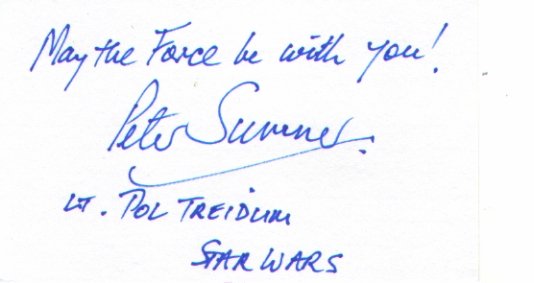 May the Force be with you!
Peter Sumner.
LT. POL TREIDUM
STAR WARS